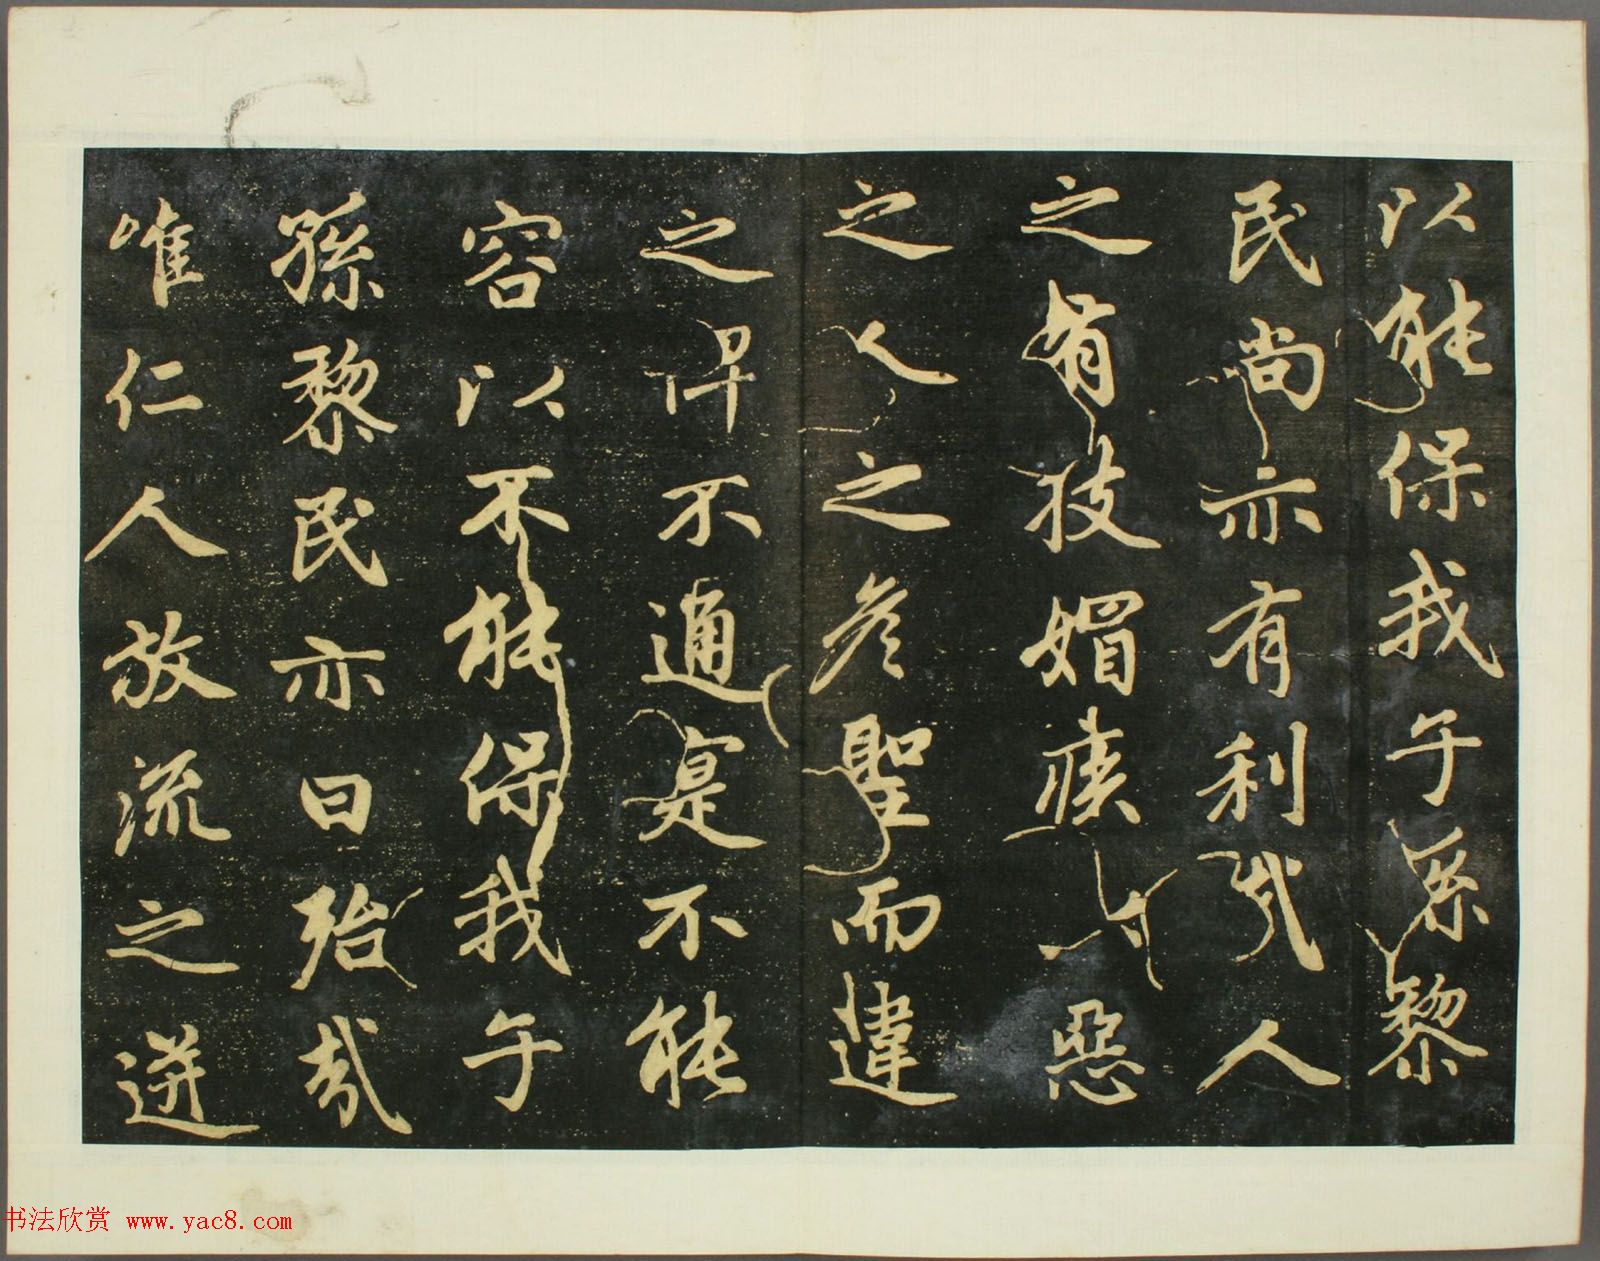 以能保我子孫黎
民尚亦有利哉人
之有技媢疾以惡
之人之彥聖而違
之俾不通寔不能
容以不能保我子
孫黎民亦曰殆哉
唯仁人放流之迸
书法欣赏 www.yac8.com